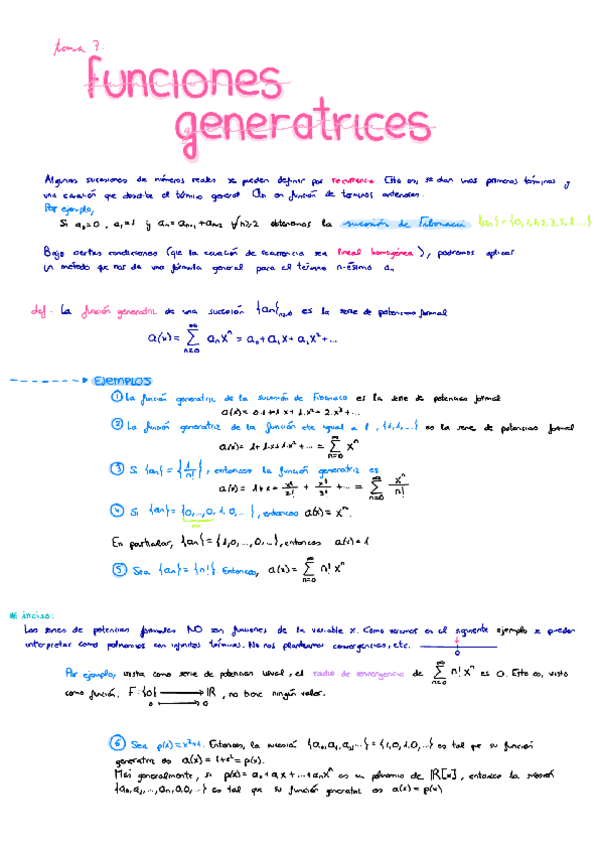 tema 7.
funciones
generatrices
Algunas sucesiones de números reales se pueden definir por recurrencia. Esto es, se dan unos primeros términos y
una ecuación que describe el término general an en función de términos anteriores.
Por ejemplo,
Si a₀=0, a₁=1 y an=an-1+an-2 ∀n≥2 obtenemos la sucesión de Fibonacci {an}={0,1,1,2,3,5,8....}
Bajo ciertas condiciones (que la ecuación de recurrencia sea lineal homogénea), podremos aplicar
un método que nos da una fórmula general para el término n-ésimo an
def. La función generatriz de una sucesión {an}n≥0 es la serie de potencias formal
a(x) = ∑ n=0 ∞ anxⁿ = a₀+a₁x+a₂x²+...
EJEMPLOS
① La función generatriz de la sucesión de Fibonacci es la serie de potencias formal
a(x)= 0+1·x+1·x²+2·x³+...
② La función generatriz de la función cte igual a 1, {1,1,...} es la serie de potencias formal
a(x)= 1+1·x+1·x²+... = ∑ n=0 ∞ xⁿ
③ Si {an} = {1/n!}, entonces la función generatriz es
a(x)= 1+x+x²/2!+x³/3!+... = ∑ n=0 ∞ xⁿ/n!
④ Si {an}={0,...,0,1,0,...}, entonces a(x)=x^m.
En particular, {an}={1,0,...,0,...}, entonces a(x)=1
⑤ Sea {an}={n!}. Entonces, a(x)= ∑ n=0 ∞ n! xⁿ
* inciso:
Las series de potencias formales NO son funciones de la variable x. Como veremos en el siguiente ejemplo se pueden
interpretar como polinomios con infinitos términos. No nos planteamos convergencias, etc. 0
Por ejemplo, vista como serie de potencias usual, el radio de convergencia de ∑ n=0 ∞ n! xⁿ es 0. Esto es, visto
como función, F:{0} → ℝ, no tiene ningún valor.
0 → 0
⑥ Sea p(x)=x²+1. Entonces, la sucesión {a₀,a₁,a₂,...}={1,0,1,0,...} es tal que su función
generatriz es a(x)= 1+x²=p(x).
Más generalmente, si p(x)= a₀+a₁x+...+anxⁿ es un polinomio de ℝ[x], entonces la sucesión
{a₀,a₁,...,an,0,0,...} es tal que su función generatriz es a(x)=p(x)